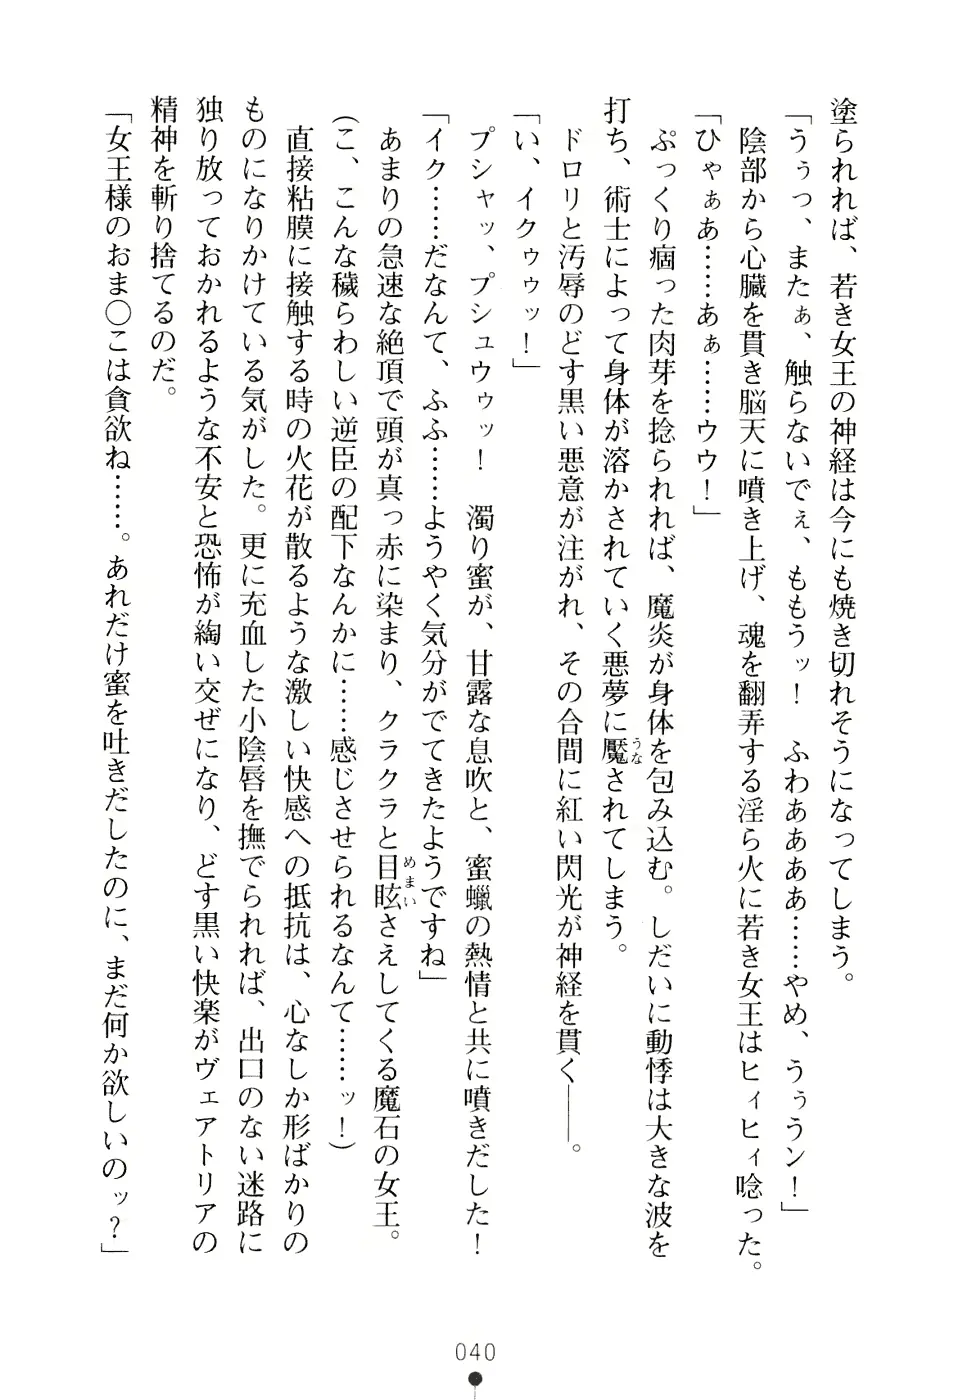 塗られれば、若き女王の神経は今にも焼き切れそうになってしまう。
「うぅっ、またぁ、触らないでぇ、ももうッ！　ふわあああぁ……やめ、うぅうン！」
陰部から心臓を貫き脳天に噴き上げ、魂を翻弄する淫ら火に若き女王はヒィヒィ唸った。
「ひゃぁあ……あぁ……ウウ！」
ぷっくり痼った肉芽を捻られれば、魔炎が身体を包み込む。しだいに動悸は大きな波を
打ち、術士によって身体が溶かされていく悪夢に魘されてしまう。
ドロリと汚辱のどす黒い悪意が注がれ、その合間に紅い閃光が神経を貫く――。
「い、イクゥゥッ！」
プシャッ、プシュウゥッ！　濁り蜜が、甘露な息吹と、蜜蠟の熱情と共に噴きだした！
「イク……だなんて、ふふ……ようやく気分がでてきたようですね」
あまりの急速な絶頂で頭が真っ赤に染まり、クラクラと目眩さえしてくる魔石の女王。
（こ、こんな穢らわしい逆臣の配下なんかに……感じさせられるなんて……ッ！）
直接粘膜に接触する時の火花が散るような激しい快感への抵抗は、心なしか形ばかりの
ものになりかけている気がした。更に充血した小陰唇を撫でられれば、出口のない迷路に
独り放っておかれるような不安と恐怖が綯い交ぜになり、どす黒い快楽がヴェアトリアの
精神を斬り捨てるのだ。
「女王様のおま〇こは貪欲ね……。あれだけ蜜を吐きだしたのに、まだ何か欲しいのッ？」
うな
めまい
040